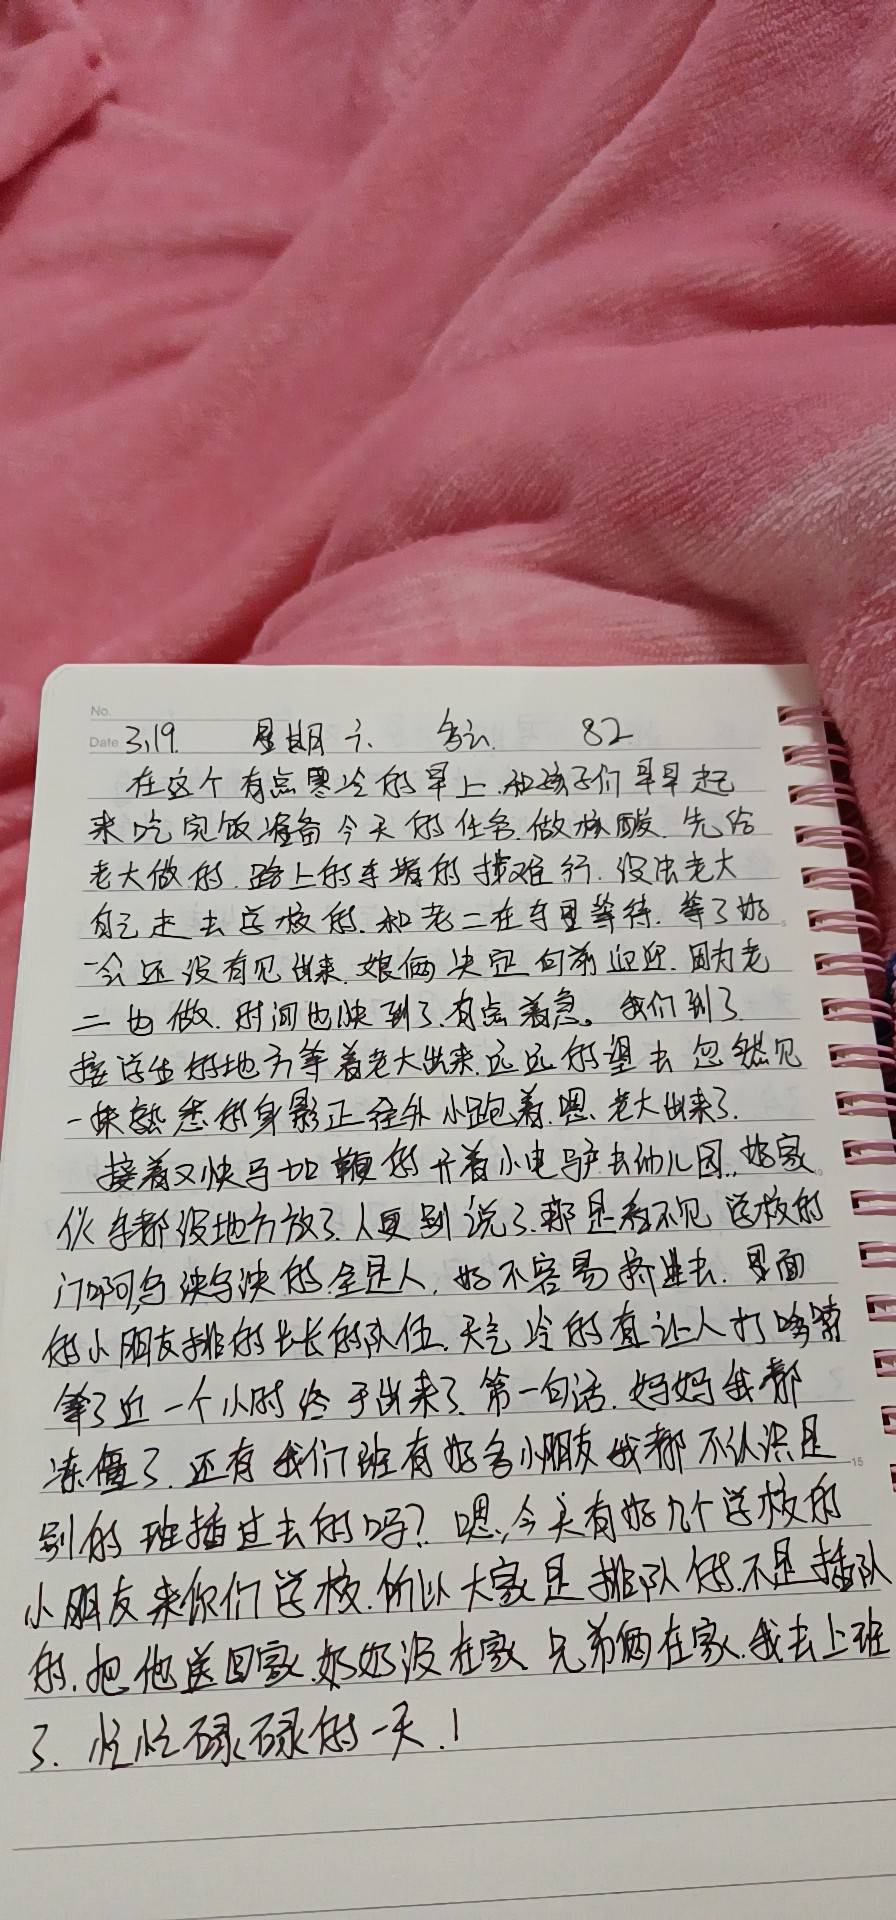 No.
Date 3.19. 星期六. 多云. 82
在这个有点寒冷的早上.和孩子们早早起
来吃完饭准备今天的任务.做核酸.先给
老大做的.路上的车堵的挺难行.没法老大
自己走去学校的.和老二在车里等待.等了好
一会还没有见出来.娘俩决定向前迎迎.因为老
二也做.时间也快到了.有点着急。我们到了
接学生的地方等着老大出来.远远的望去忽然见
一抹熟悉的身影正往外小跑着.嗯.老大出来了.
接着又快马加鞭的开着小电驴去幼儿园..好家
伙车都没地方放了.人更别说了.都是看不见学校的
门啊,乌泱乌泱的.全是人.好不容易挤进去.里面
的小朋友排的长长的队伍.天气冷的直让人打哆嗦
等了近一个小时终于出来了.第一句话.妈妈我都
冻僵了.还有我们班有好多小朋友我都不认识是
别的班插过去的吗?嗯.,今天有好几个学校的
小朋友来你们学校.所以大家是排队的.不是插队
的.把他送回家.奶奶没在家.兄弟俩在家.我去上班
了.忙忙碌碌的一天.!
15